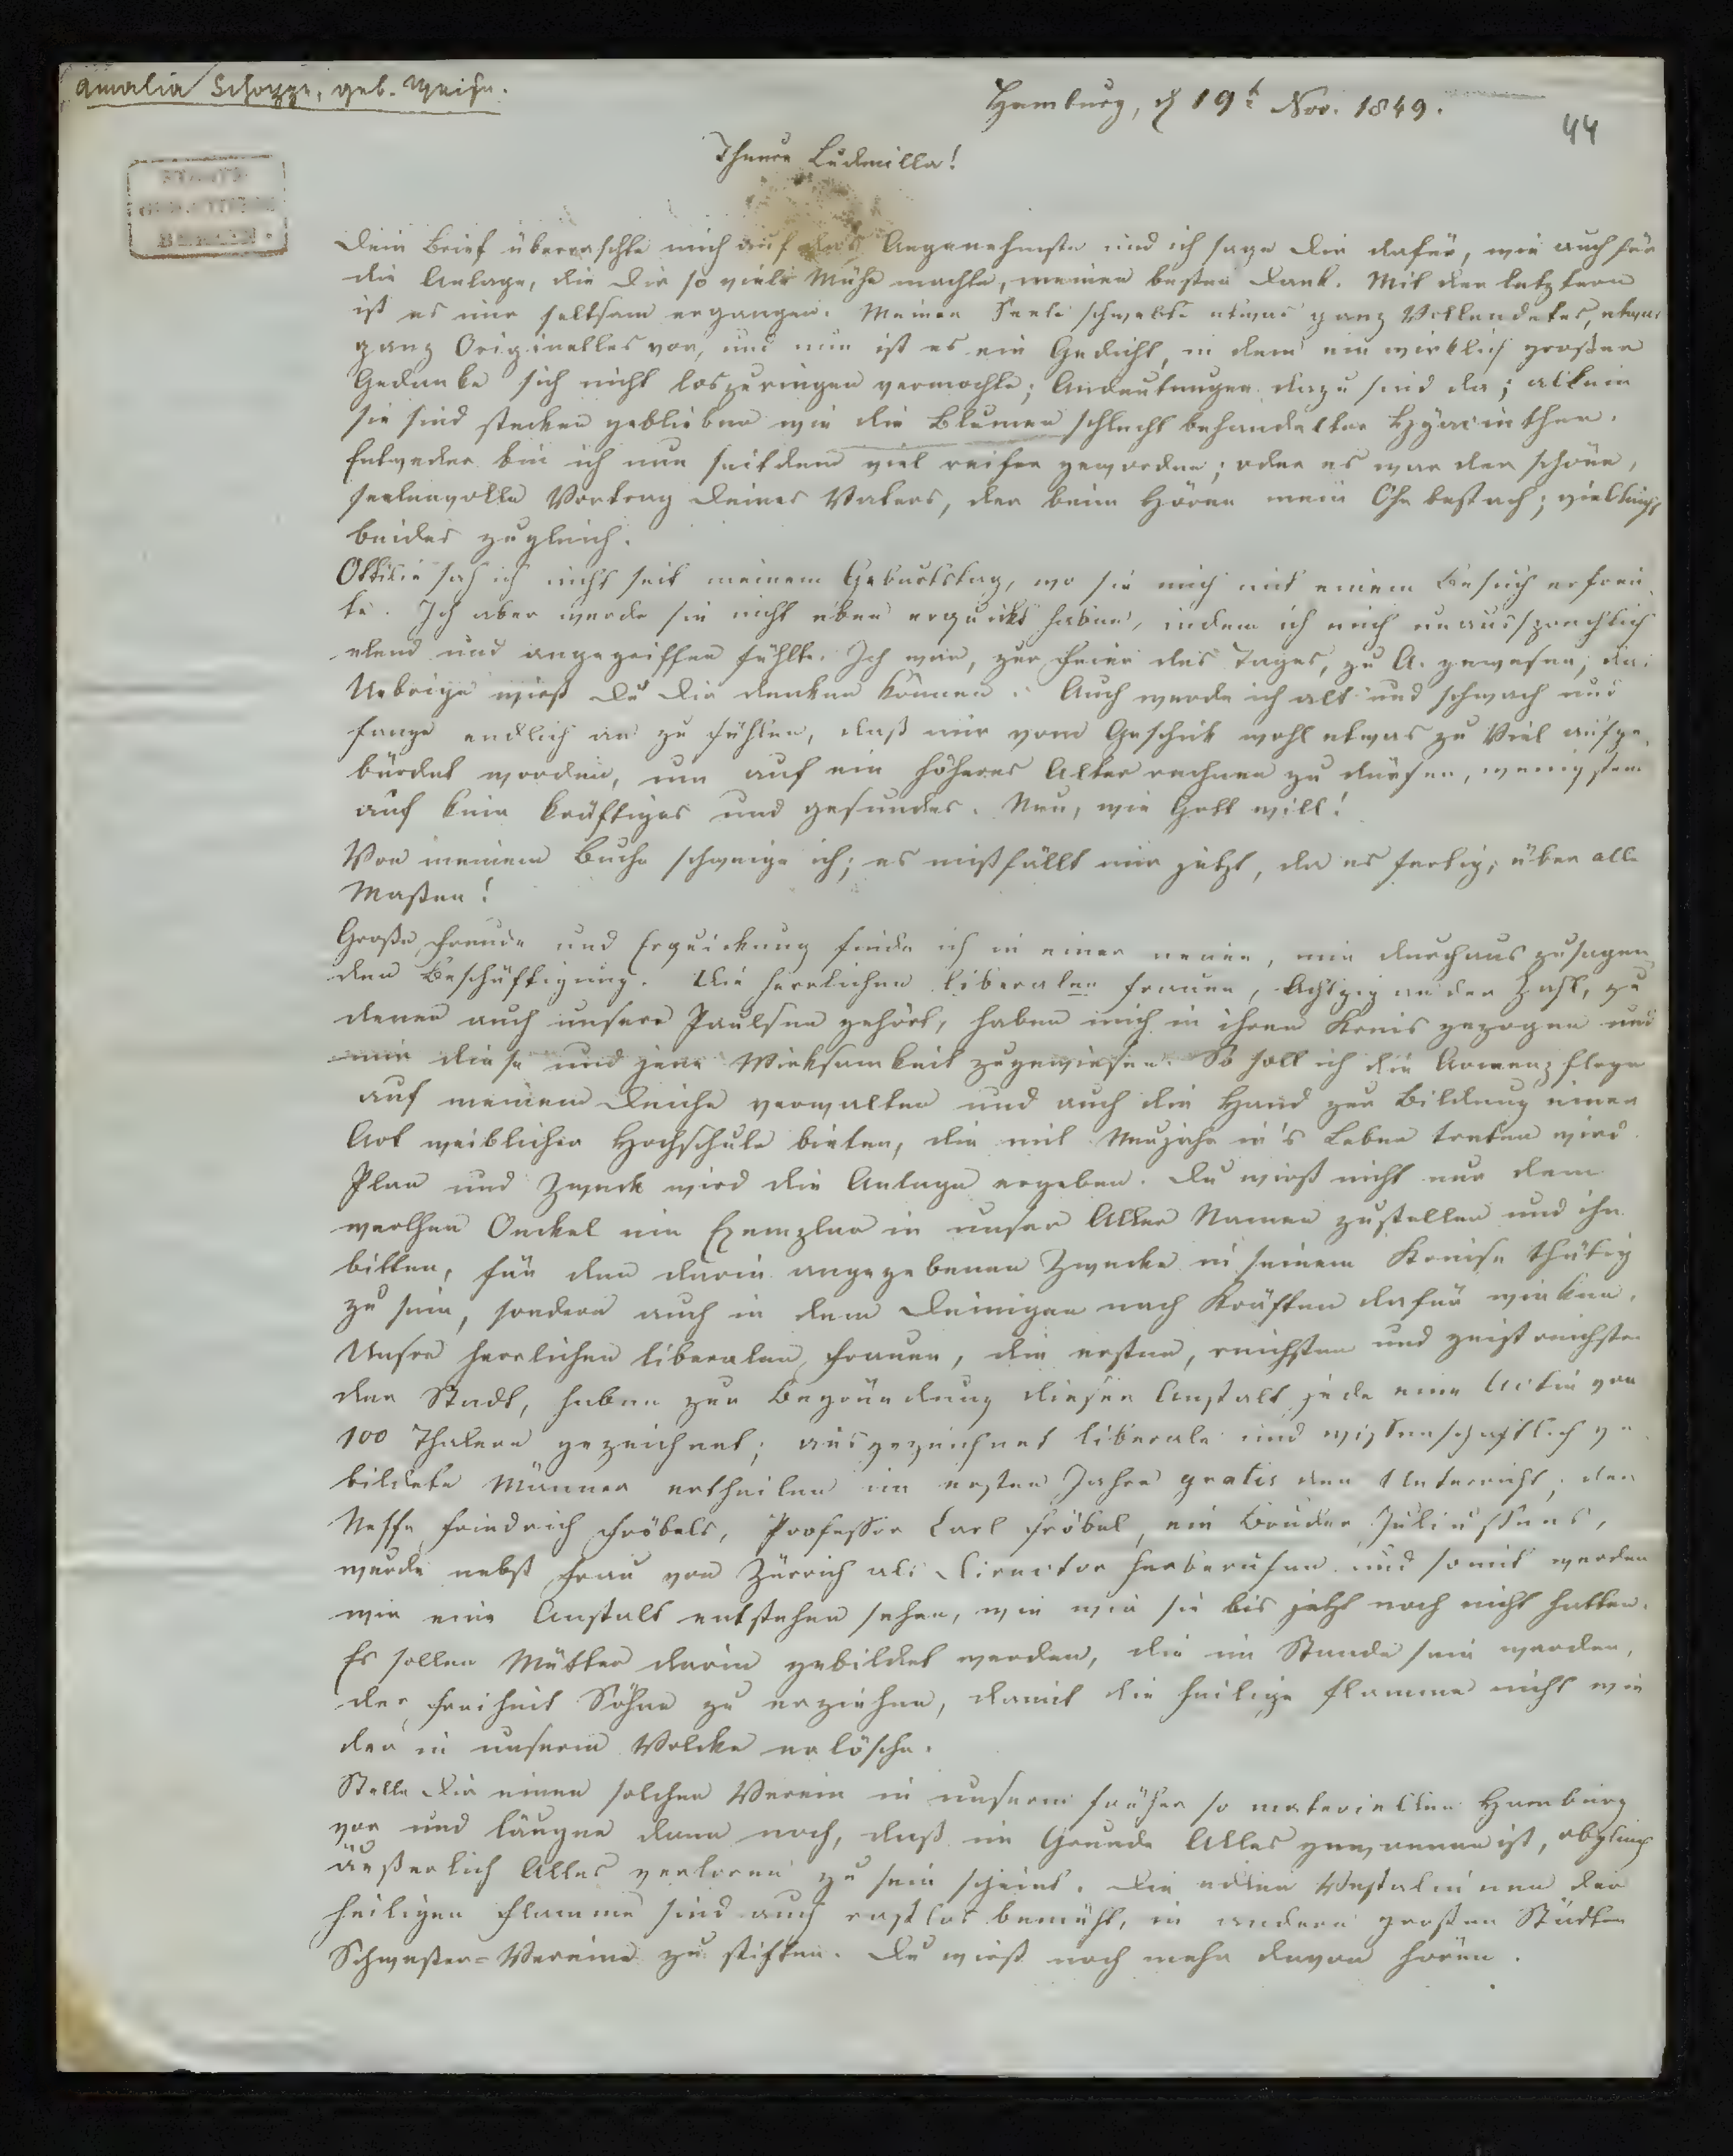 Amalia Schoppe, geb. Weise.
Hamburg, d 19t Nov. 1849.
44
Theure Ludmilla!
STAATS
BIBLIOTHEK
BERLIN.
Dein Brief überraschte mich auf das Angenehmste und ich sage Dir dafür, wie auch für
die Anlage, die Dir so viele Mühe machte, meinen besten Dank. Mit der letztern
ist es mir seltsam ergangen. Meiner Seele schwebte etwas ganz Vollendetes, etwas
ganz Originelles vor, und nun ist es ein Gedicht, in dem ein wirklich großer
Gedanke sich nicht loszuringen vermochte; Andeutungen dazu sind da; allein
sie sind stecken geblieben wie die Blumen schlecht behandelter Hyacinthen.
Entweder bin ich nun seitdem viel reifer geworden; oder es war der schöne,
seelenvolle Vortrag Deines Vaters, der beim Hören mein Ohr bestach; vielleicht
beides zugleich.
Ottilie sah ich nicht seit meinem Geburtstag, wo sie mich mit einem Besuch erfreu-
te. Ich aber werde sie nicht eben erquickt haben, indem ich mich unaussprechlich
elend und angegriffen fühlte. Ich war, zur Feier des Tages, zu A. gewesen; das
Uebrige wirst Du Dir denken können. Auch werde ich alt und schwach und
fange endlich an zu fühlen, daß mir vom Geschick wohl etwas zu Viel aufge-
bürdet worden, um auf ein höheres Alter rechnen zu dürfen, wenigstens
auf kein kräftiges und gesundes. Nun, wie Gott will!
Von meinem Buche schweige ich; es mißfällt mir jetzt, da es fertig, über alle
Maßen!
Große Freude und Erquickung finde ich in einer neuen, mir durchaus zusagen-
den Beschäftigung. Die herrlichen liberalen Frauen, Achtzig an der Zahl, zu
denen auch unsere Paulsen gehört, haben mich in ihren Kreis gezogen und
mir diese und jene Wirksamkeit zugewiesen. So soll ich die Armenpflege
auf meinem Deiche verwalten und auch die Hand zur Bildung einer
Art weiblicher Hochschule bieten, die mit Neujahr in's Leben treten wird.
Plan und Zweck wird die Anlage ergeben. Du wirst nicht nur dem
werthen Onckel ein Exemplar in unser Aller Namen zustellen und ihn
bitten, für den darin angegebenen Zwecke in seinem Kreise thätig
zu sein, sondern auch in dem Deinigen nach Kräften dafür wirken.
Unsre herrlichen liberalen Frauen, die ersten, reichsten und geistreichsten
der Stadt, haben zur Begründung dieser Anstalt jede eine Actie von
100 Thalern gezeichnet; ausgezeichnet liberale und wissenschaftlich ge-
bildete Männer ertheilen im ersten Jahre gratis den Unterricht; der
Neffe Friedrich Fröbels, Professor Carl Fröbel, ein Bruder Juliussens,
wurde nebst Frau von Zürrich als Director herberufen und somit werden
wir eine Anstalt entstehen sehen, wie wir sie bis jetzt noch nicht hatten.
Es sollen Mütter darin gebildet werden, die im Stande sein werden,
der Freiheit Söhne zu erziehen, damit die heilige Flamme nicht wie-
der in unserm Volcke erlösche.
Stelle Dir einen solchen Verein in unserm früher so materiellen Hamburg
vor und läugne dann noch, daß im Grunde Alles gewonnen ist, obgleich
äußerlich Alles verloren zu sein scheint. Die edlen Vestalinnen der
heiligen Flamme sind auch rastlos bemüht, in andern großen Städten
Schwester-Vereine zu stiften. Du wirst noch mehr davon hören.